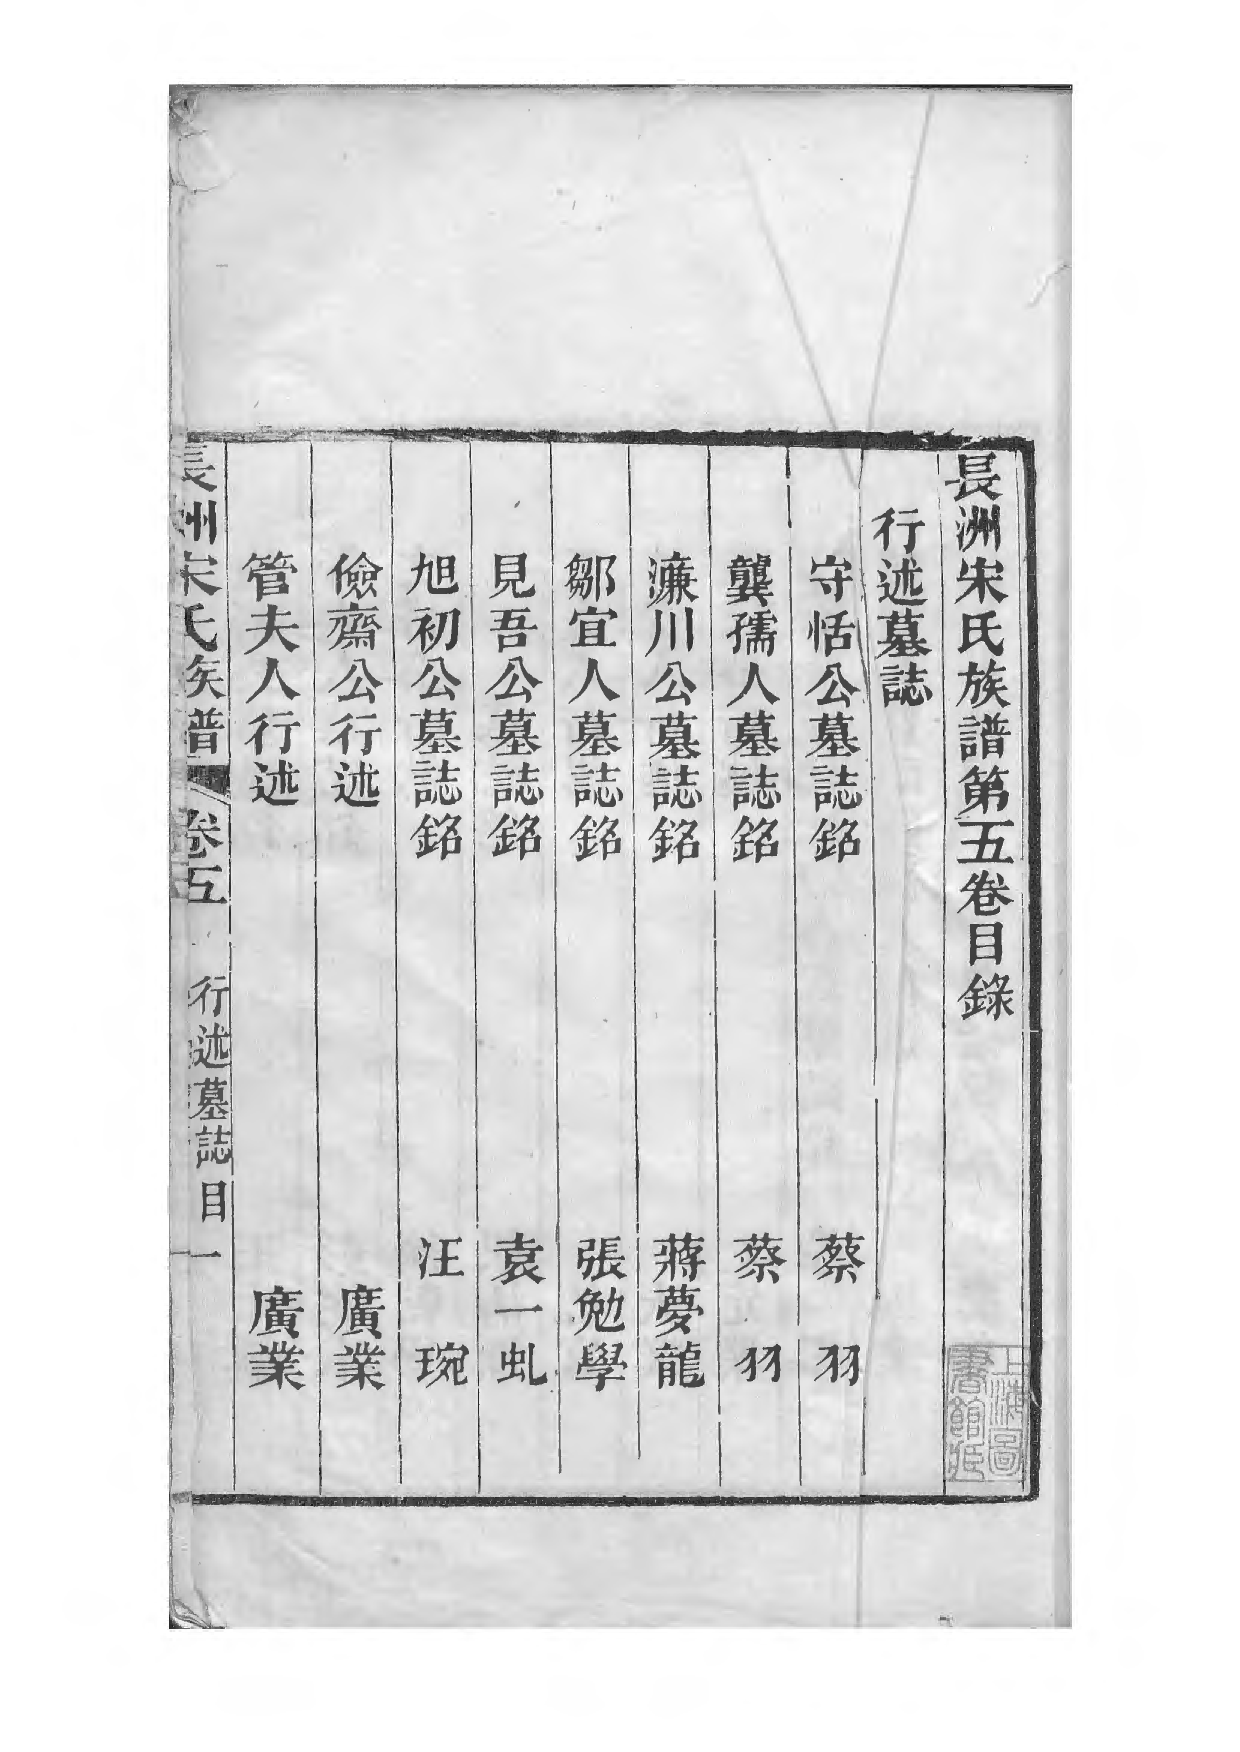 長洲宋氏族譜第五卷目錄
行述墓誌
守恬公墓誌銘 蔡羽
龔孺人墓誌銘 蔡羽
濂川公墓誌銘 蔣夢龍
鄒宜人墓誌銘 張勉學
見吾公墓誌銘 袁一虬
旭初公墓誌銘 汪琬
儉齋公行述 廣業
管夫人行述 廣業
長洲宋氏族譜 卷五 行述墓誌目 一
上海圖書館藏